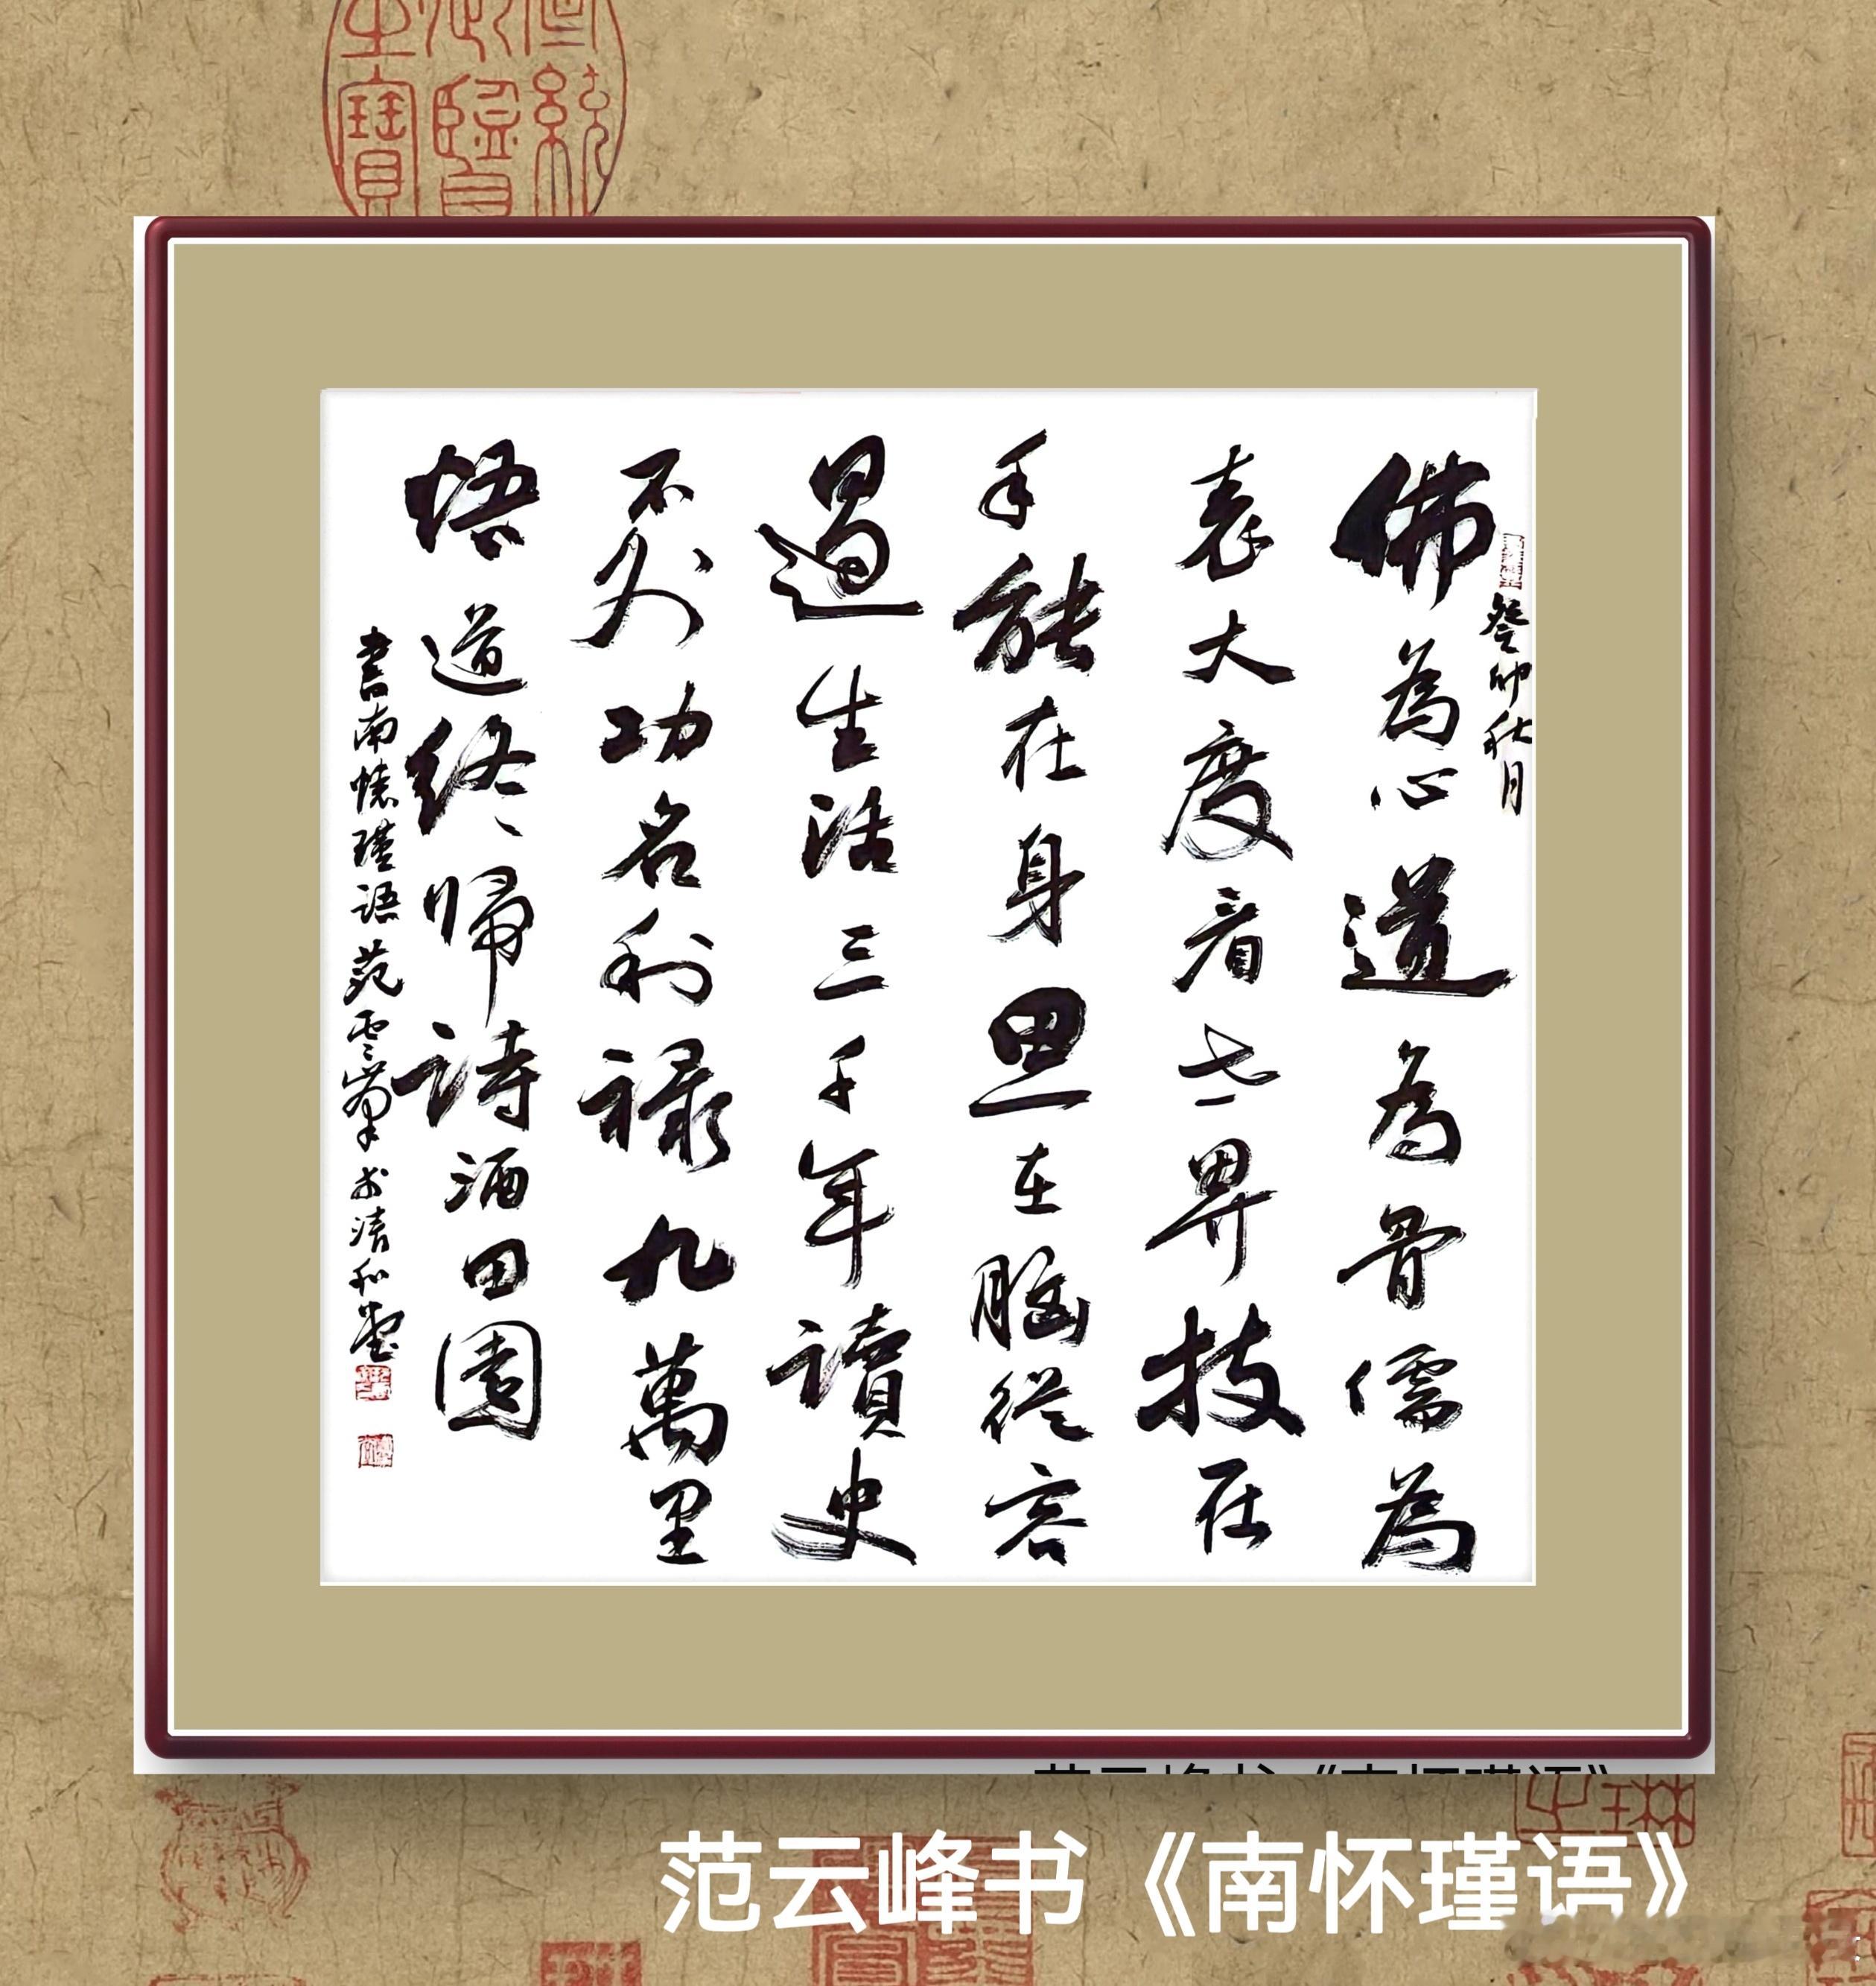 癸卯秋月
佛為心道為骨儒為
表大度看世界技在
手能在身思在腦從容
過生活三千年讀史
不外功名利祿九萬里
悟道終歸詩酒田園
書南懷瑾語范雲峯於清和堂
范云峰书《南怀瑾语》